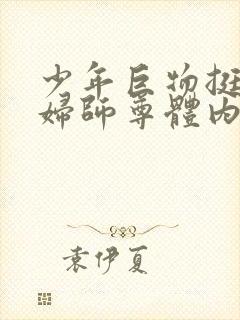 少年巨物挺
婦師尊體内
袁伊夏